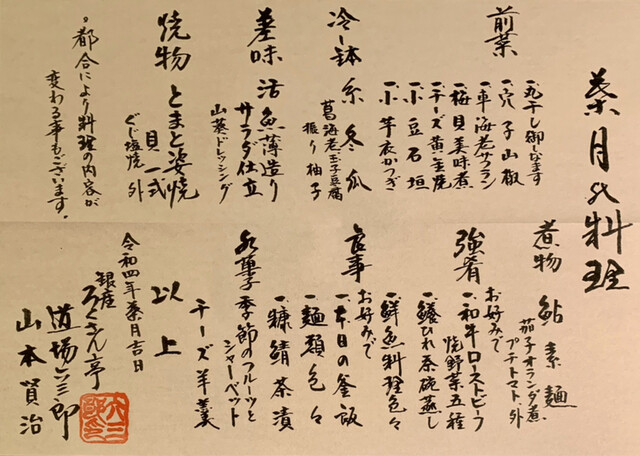 葉月の料理
前菜
一、丸干し御しのぎ
一、穴子山椒
一、車海老サフラン
一、梅貝美味煮
一、チーズ黄金焼
一、小豆石垣
一、小芋衣かつぎ
冷し鉢 糸冬瓜
葛海老玉子豆腐
振り柚子
造味 活魚薄造り
サラダ仕立
山葵ドレッシング
焼物 とまと姿焼
貝一式
ぐじ塩焼 外
都合により料理の内容が
変わる事もございます。
煮物 鮎素麺
茄子オランダ煮、
プチトマト、外
強肴
お好みで
一、和牛ローストビーフ
焼野菜五種
一、鱶ひれ茶碗蒸し
一、鮮魚料理色々
食事
お好みで
一、本日の釜飯
一、麺類色々
一、糠鯖茶漬
水菓子 季節のフルーツと
シャーベット
チーズ羊羹
以上
令和四年葉月吉日
銀座
ろくさん亭
道場六三郎
山本賢治